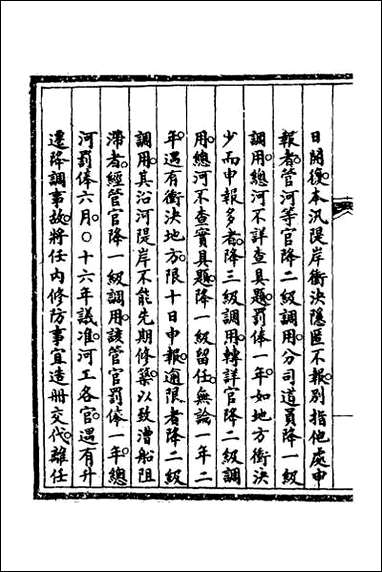 日開復本汛隄岸衝決隱匿不報別指他處申
報者管河等官降二級調用分司道員降一級
調用總河不詳查具題罰俸一年如地方衝決
少而申報多者降三級調用轉詳官降二級調
用總河不查實具題降一級留任無論一年二
年遇有衝決地方限十日申報逾限者降二級
調用其沿河隄岸不能先期修築以致漕船阻
滯者經管官降一級調用該管官罰俸一年總
河罰俸六月〇十六年議准河工各官遇有升
遷降調事故將任內修防事宜造冊交代離任